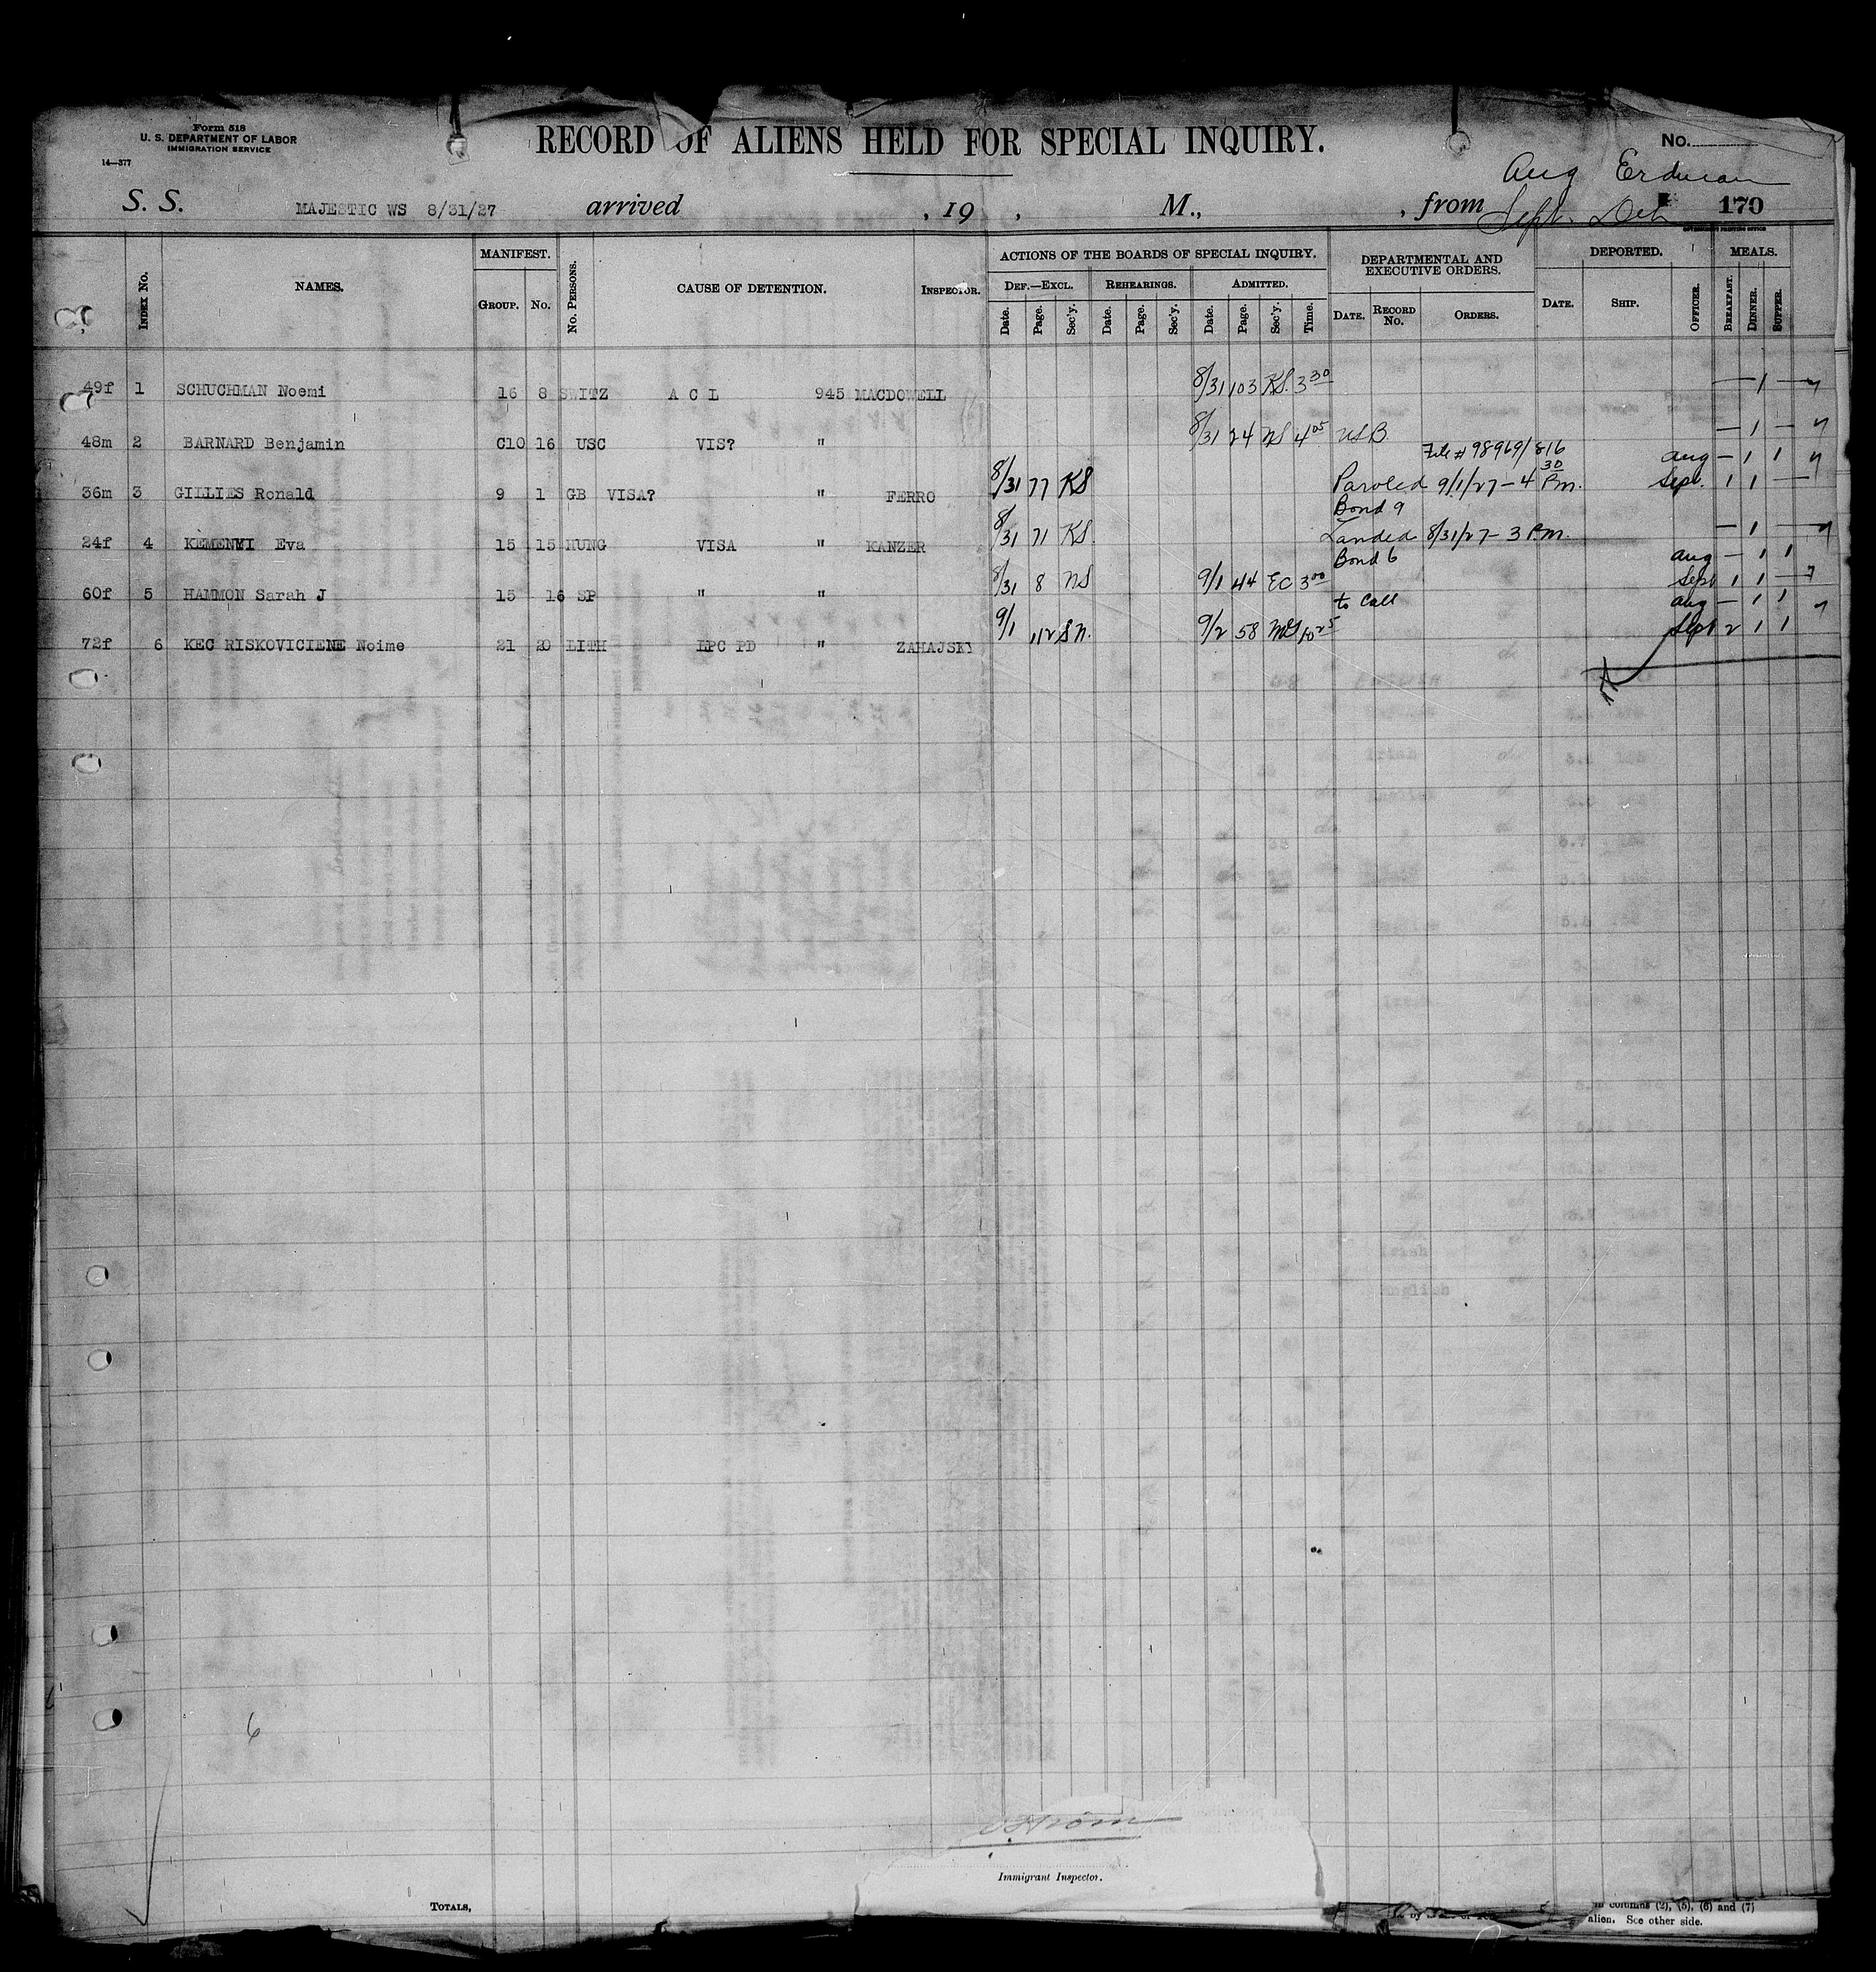 Form 518
U. S. DEPARTMENT OF LABOR
IMMIGRATION SERVICE
14—377
RECORD OF ALIENS HELD FOR SPECIAL INQUIRY.
No.
Aug Erdman
S. S. MAJESTIC WS 8/31/27 arrived , 19 , M., , from Sept. 170
GOVERNMENT PRINTING OFFICE
Index No. NAMES. MANIFEST. Group. No. No. Persons. CAUSE OF DETENTION. Inspector. ACTIONS OF THE BOARDS OF SPECIAL INQUIRY. DEPARTMENTAL AND EXECUTIVE ORDERS. DEPORTED. MEALS.
Def.—Excl. Rehearings. Admitted.
Date. Page. Sec'y. Date. Page. Sec'y. Date. Page. Sec'y. Time. Date. Record No. Orders. Date. Ship. Officer. Breakfast. Dinner. Supper.
49f 1 SCHUCHMAN Noemi 16 8 SWITZ A C L 945 MACDOWELL 8/31 103 KS. 3 30 — 1 —
48m 2 BARNARD Benjamin C10 16 USC VIS? " 8/31 24 NS 4 05 USB — 1 —
File # 98969/816
36m 3 GILLIES Ronald 9 1 GB VISA? " FERRO 8/31 77 KS Paroled 9/1/27 – 4 30 P.m. Aug — 1 1
Sept. 1 1 —
Bond 9
24f 4 KEMENYI Eva 15 15 HUNG VISA " KANZER 8/31 71 KS. Landed 8/31/27 – 3 P.m. — 1 —
Bond 6
60f 5 HAMMON Sarah J 15 16 SP " " 8/31 8 NS 9/1 44 EC 3 00 Aug — 1 1
Sept 1 1 —
to Call
72f 6 KEC RISKOVICIENE Noime 21 20 LITH LPC PD " ZAHAJSKY 9/1 112 SN. 9/2 58 MS 10 25 Aug — 1 1
Sept 2 1 1
6
Immigrant Inspector.
Totals,
in columns (2), (5), (6) and (7)
alien. See other side.